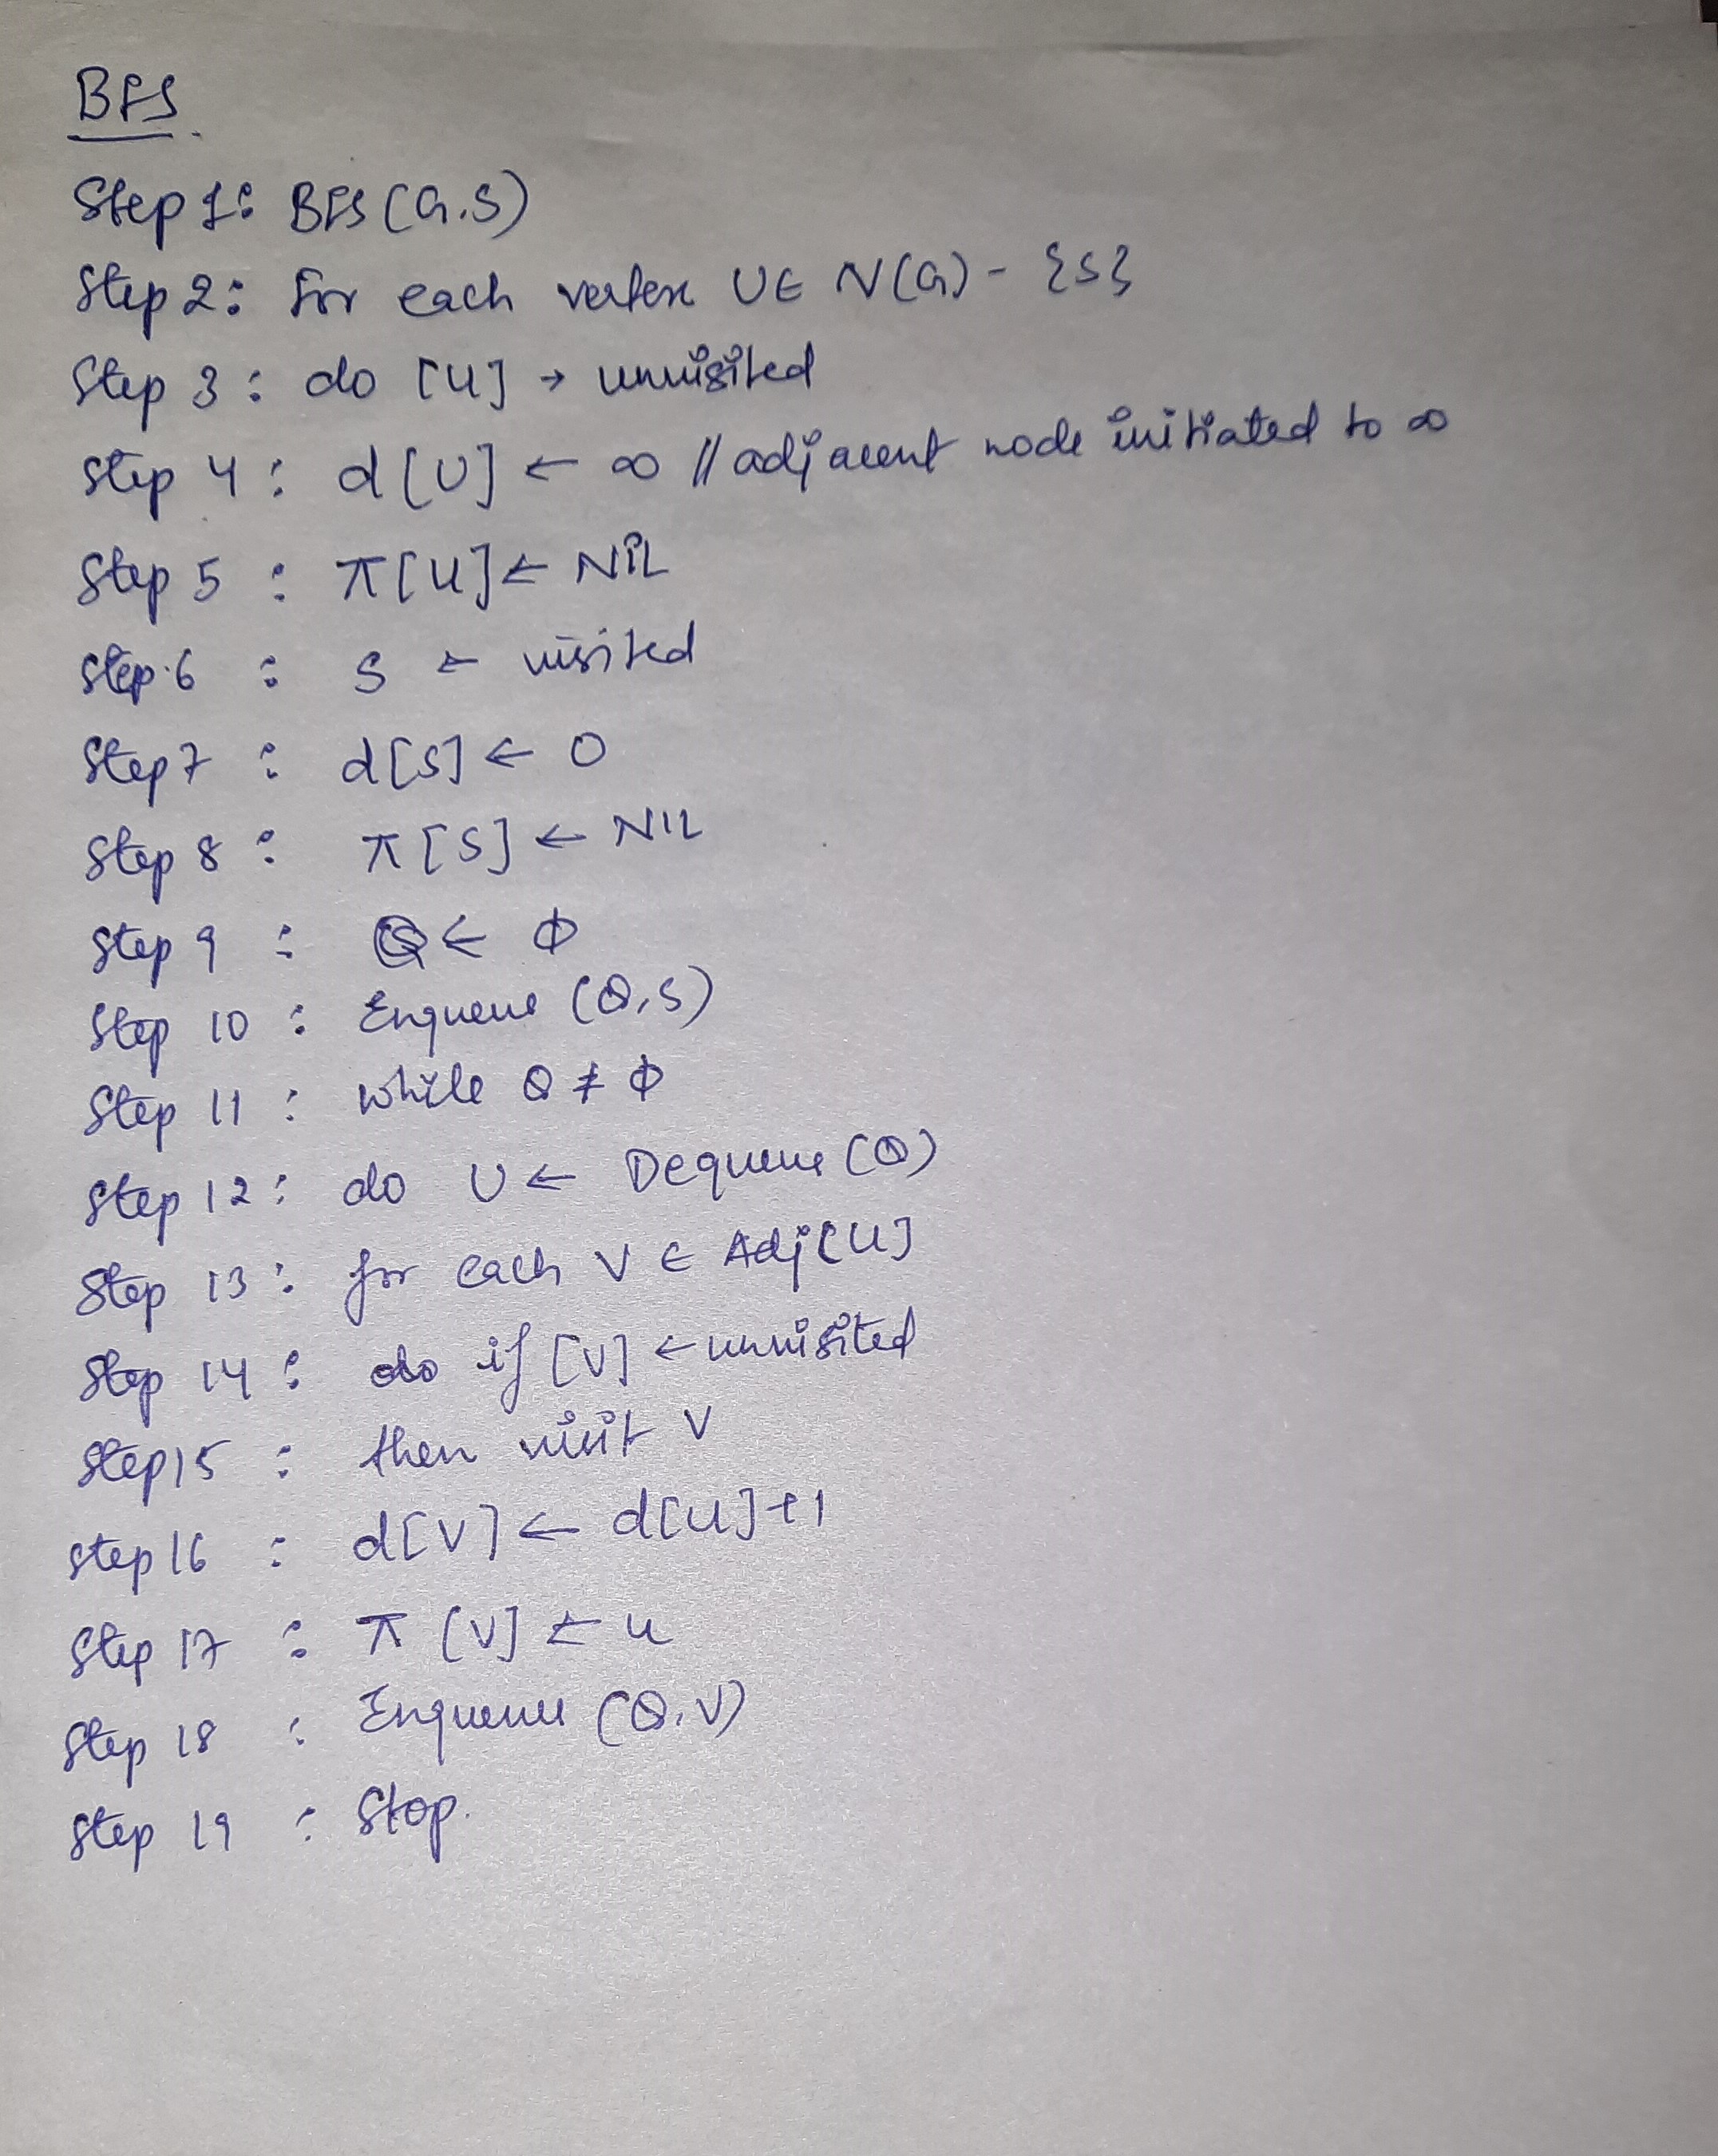 BFS
Step 1: BFS (G,S)
Step 2: For each vertex U ∈ N(G) - {S}
Step 3: do [u] → unvisited
Step 4: d[U] ← ∞ // adjacent node initiated to ∞
Step 5: π[u] ← NIL
Step 6: S ← visited
Step 7: d[S] ← 0
Step 8: π[S] ← NIL
Step 9: Q ← Φ
Step 10: Enqueue (Q,S)
Step 11: While Q ≠ Φ
Step 12: do U ← Dequeue (Q)
Step 13: for each V ∈ Adj[u]
Step 14: do if [V] ← unvisited
Step 15: then visit V
Step 16: d[V] ← d[u]+1
Step 17: π [V] ← u
Step 18: Enqueue (Q,V)
Step 19: Stop.